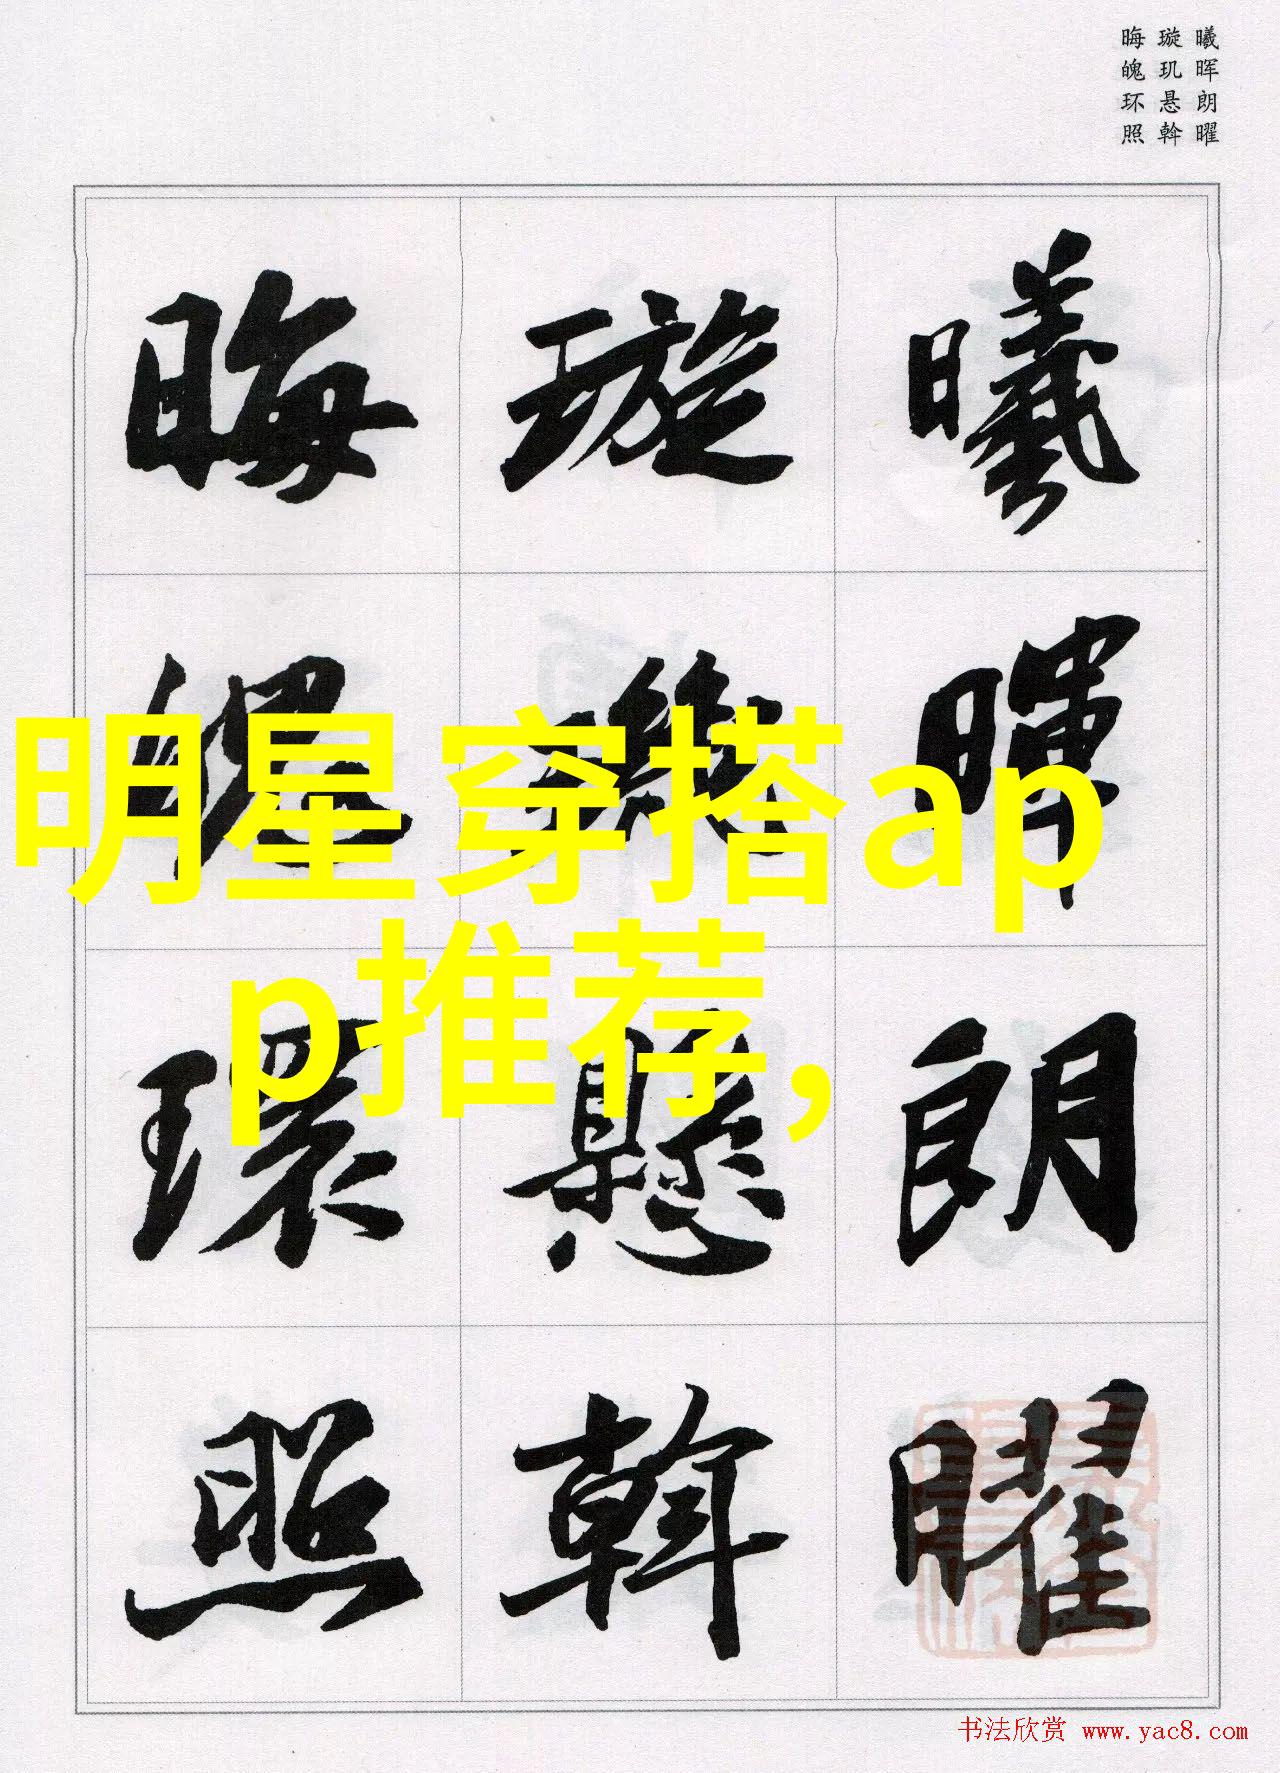 曦晖朗曜
璇玑悬斡
晦魄环照
曦暉朗曜
璇璣懸斡
晦魄環照
明星穿搭ap
p推荐,
书法欣赏 www.yac8.com